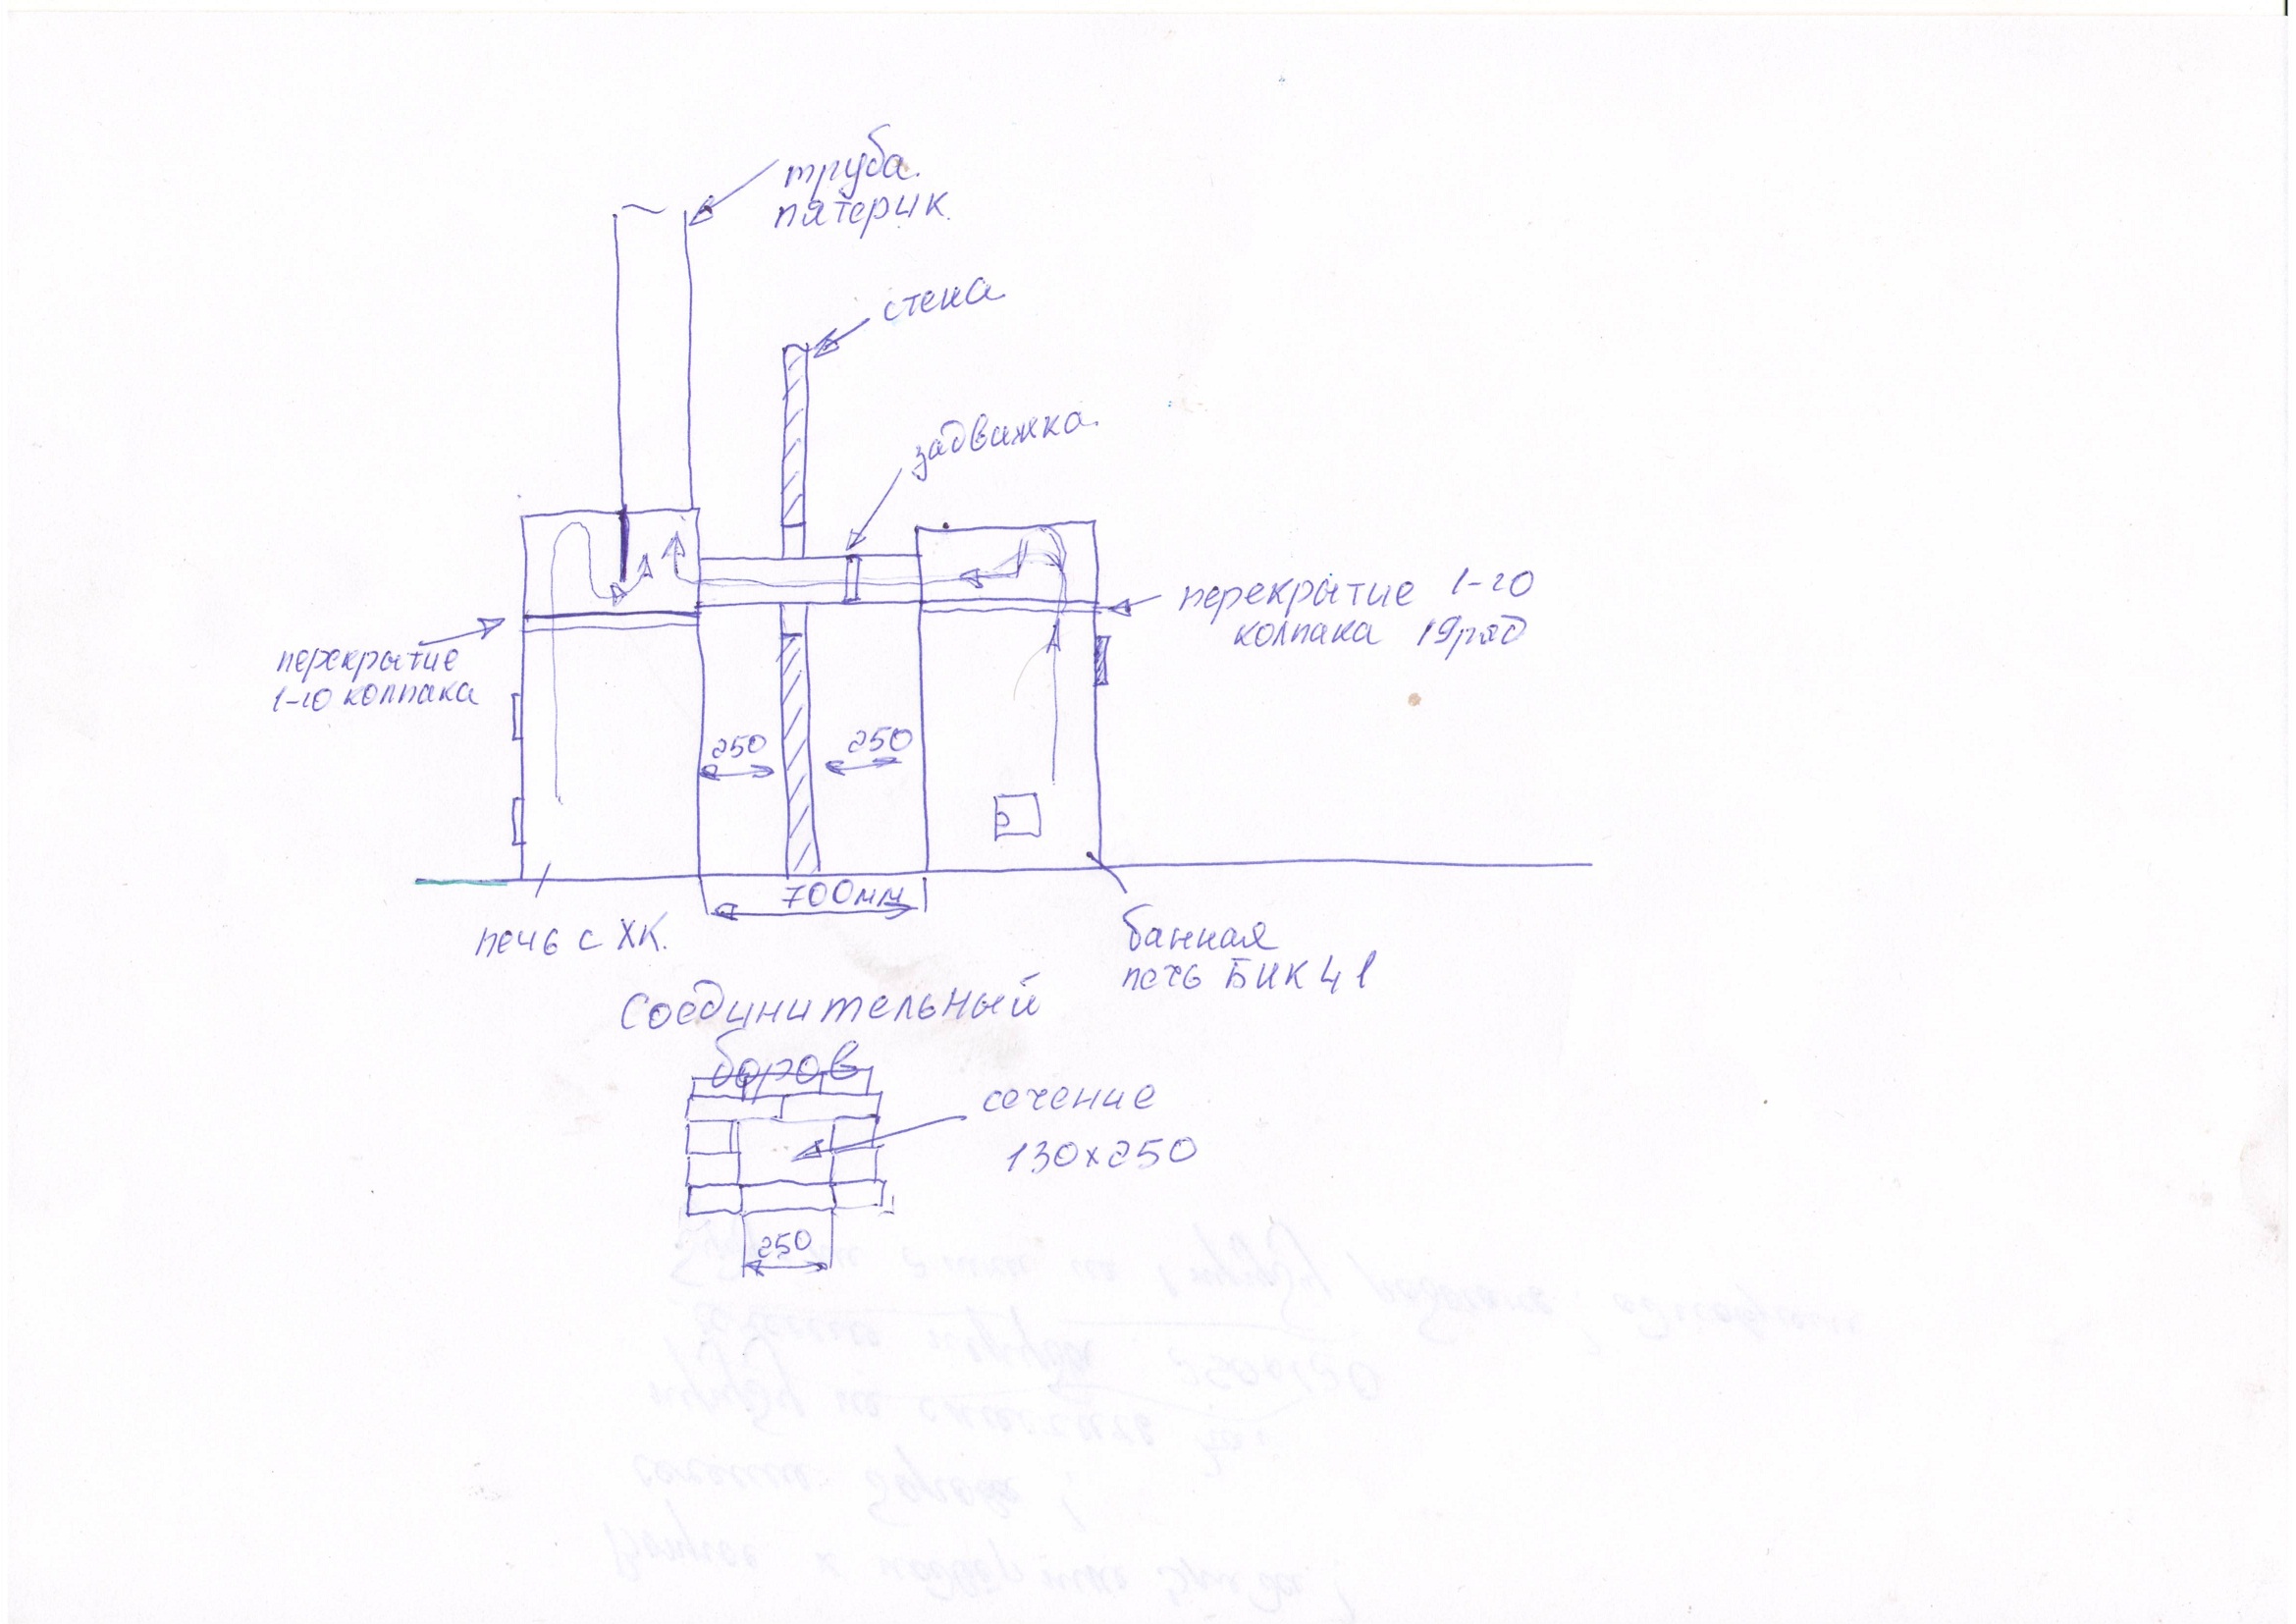 труба.
пятерик
стена
задвижка.
перекрытие 1-го
колпака 19ряд
перекрытие
1-го колпака
250
250
700мм
печь с ХК.
банная
печь БИК 41
Соединительный
боров
сечение
130х250
250